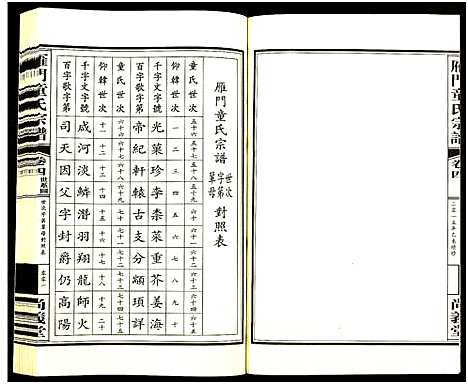 雁門童氏宗譜
卷四
二零一五年乙未續修
尚義堂
雁門童氏宗譜
世次
字第
單母
對照表
童氏世次
五十六
五十七
五十八
五十九
六十
六十一
六十二
六十三
六十四
六十五
仰韓世次
千字文字號
光菓珍李柰菜重芥姜海
百字歌字第
帝紀軒轅古支分顓頊詳
童氏世次
六十六
六十七
六十八
六十九
七十
七十一
七十二
七十三
七十四
七十五
仰韓世次
十一
十二
十三
十四
十五
十六
十七
十八
十九
二十
千字文字號
咸河淡鱗潛羽翔龍師火
百字歌字第
司天因父字封爵仍高陽
雁門童氏宗譜
卷四
世系圖
世次字第單母對照表
尚義堂